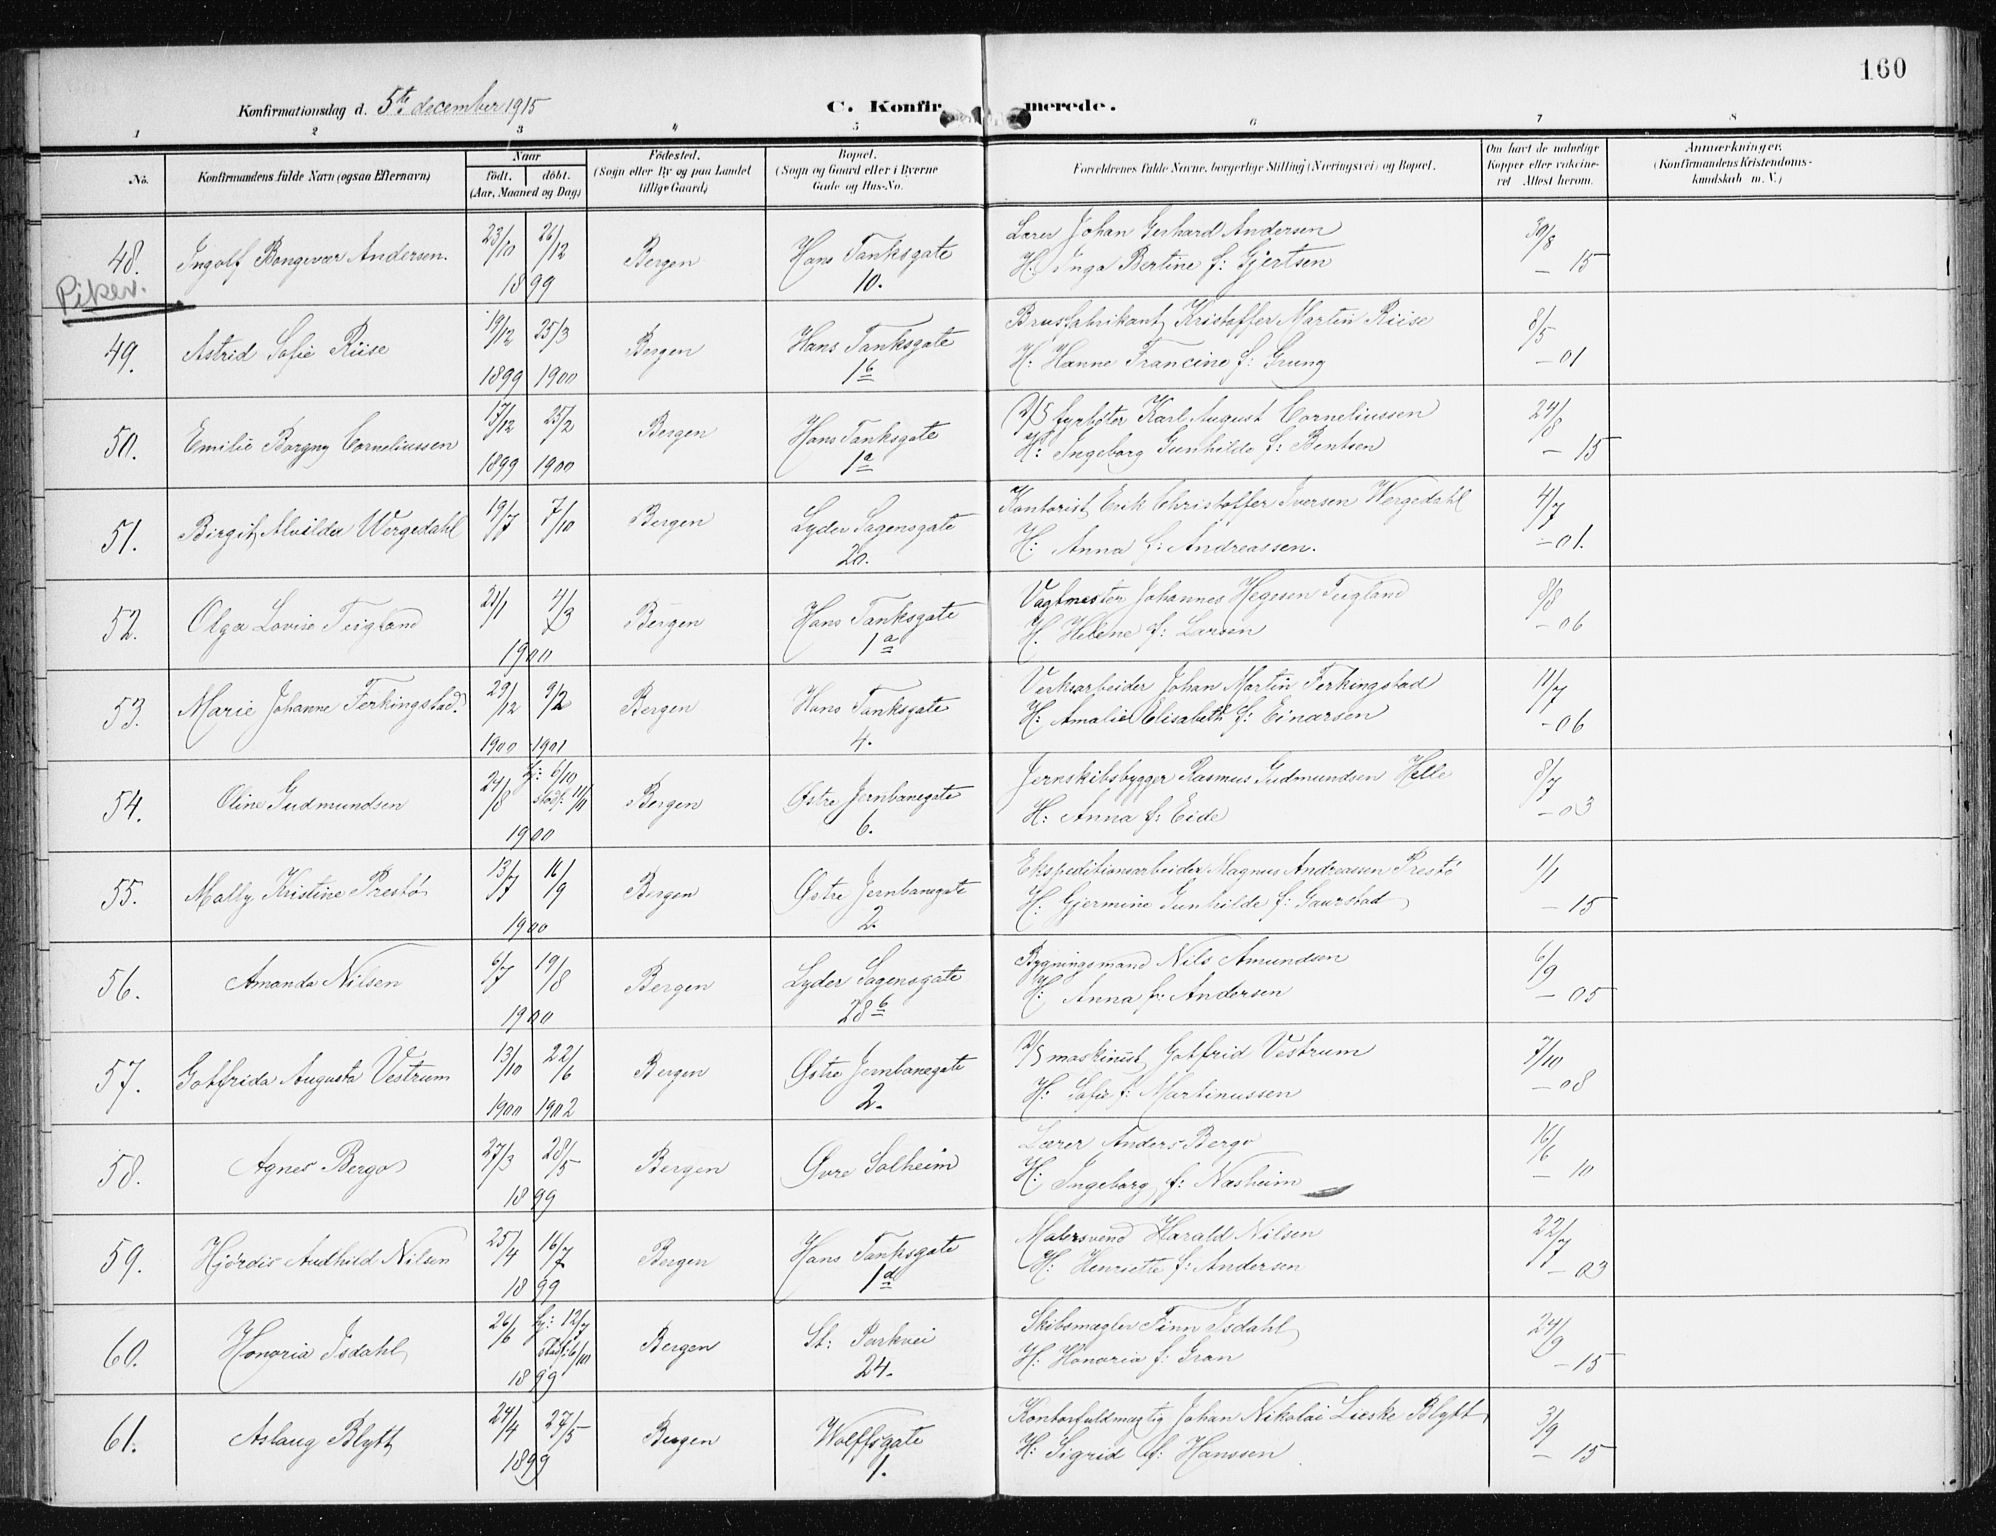 160
Konfirmationsdag d. 5te december 1915
C. Konfirmerede.
1 2 3 4 5 6 7 8
No.
Konfirmandens fulde Navn (ogsaa Efternavn)
Naar
födt. döbt.
(Aar, Maaned og Dag)
Födested.
(Sogn eller By og paa Landet
tillige Gaard)
Bopæl.
(Sogn og Gaard eller i Byerne
Gade og Hus-No.
Forældrenes fulde Navne, borgerlige Stilling (Næringsvei) og Bopæl.
Om havt de naturlige
Kopper eller vaccine-
ret Attest herom.
Anmærkninger.
(Konfirmandens Kristendoms-
kundskab m. V.)
48. Ingolf Bongevar Andersen. 23/10 26/12 1899 Bergen Hans Tanksgate 10.
Lærer Johan Gerhard Andersen
H: Inga Bertine f: Gjertsen
30/8 - 15
Piker.
49. Astrid Sofie Riise 19/12 1899 25/3 1900 Bergen Hans Tanksgate 1b
Brusfabrikant Kristoffer Martin Riise
H: Hanne Francine f: Grung
8/5 - 01
50. Emilie Borgny Corneliussen 17/12 1899 25/2 1900 Bergen Hans Tanksgate 1a
D/S fyrbøter Karl August Corneliussen
H: Ingeborg Gunhilde f: Bentsen
24/8 - 15
51. Birgit Alvilda Wergedahl 19/7 7/10 Bergen Lyder Sagensgate 20.
Kontorist Erik Christoffer Iversen Wergedahl
H: Anna f: Andreassen.
4/7 - 01.
52. Olga Lovise Teigland 21/1 4/3 1900 Bergen Hans Tanksgate 1a
Vagtmester Johannes Hegesen Teigland
H. Helene f: Larsen
9/8 - 06
53. Marie Johanne Ferkingstad. 29/12 1900 9/2 1901 Bergen Hans Tanksgate 4.
Verksarbeider Johan Martin Ferkingstad
H: Amalie Elisabeth f: Einarsen
11/7 - 06
54. Oline Gudmundsen 24/8 hj: 6/10 stadf: 11/11 1900 Bergen Østre Jernbanegate 6.
Jernskibsbygger Rasmus Gudmundsen Helle
H: Anna f: Eide
8/7 - 03
55. Mally Kristine Prestø 13/7 16/9 1900 Bergen Østre Jernbanegate 2.
Ekspeditionsarbeider Magnus Andreassen Prestø
H: Gjermine Gunhilde f: Gaustad
1/1 - 15
56. Amanda Nilsen 6/7 19/8 1900 Bergen Lyder Sagensgate 28b
Bygningsmand Nils Amundsen
H: Anna f: Andersen
6/9 - 05
57. Gotfrida Augusta Vestrum 13/10 1900 22/6 1902 Bergen Østre Jernbanegate 2.
D/S maskinist Gotfrid Vestrum
H: Sofie f: Martinussen
7/10 - 08
58. Agnes Bergo 27/3 28/5 1899 Bergen Øvre Solheim
Lærer Anders Bergo
H: Ingeborg f: Næsheim
16/6 - 10
59. Hjördis Audhild Nilsen 25/4 16/7 1899 Bergen Hans Tanksgate 1d
Malersvend Harald Nilsen
H: Henriette f: Andersen
22/7 - 03
60. Honoria Isdahl 26/6 hj: 12/7 stadf: 6/10 1899 Bergen St: Parkvei 24.
Skibsmægler Finn Isdahl
H: Honoria f: Gran
24/9 - 15
61. Aslaug Blytt 24/4 27/5 1899 Bergen Wolffsgate 1.
Kontorfuldmægtig Johan Nikolai Lieske Blytt
H: Sigrid f: Hanssen
3/9 - 15